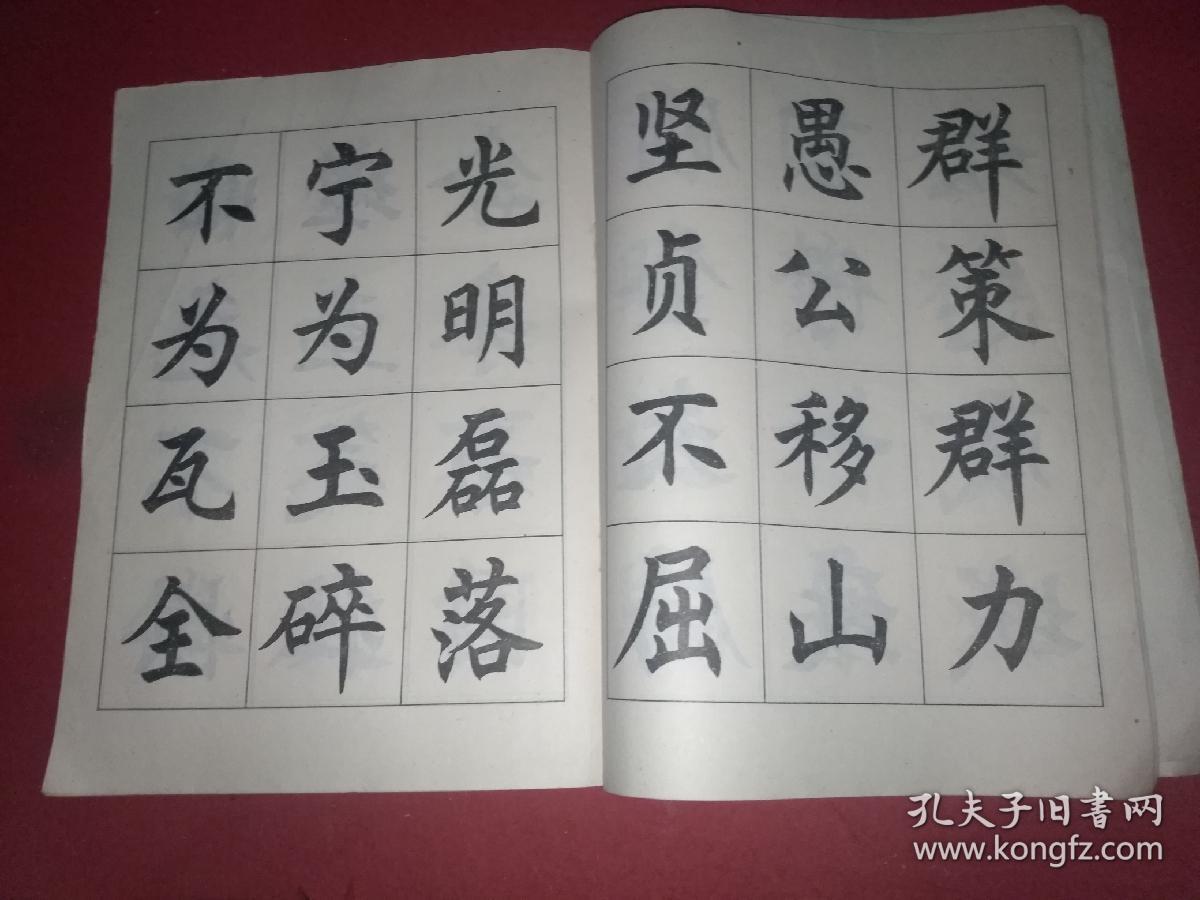 群策群力
愚公移山
坚贞不屈
光明磊落
宁为玉碎
不为瓦全
孔夫子旧书网
www.kongfz.com